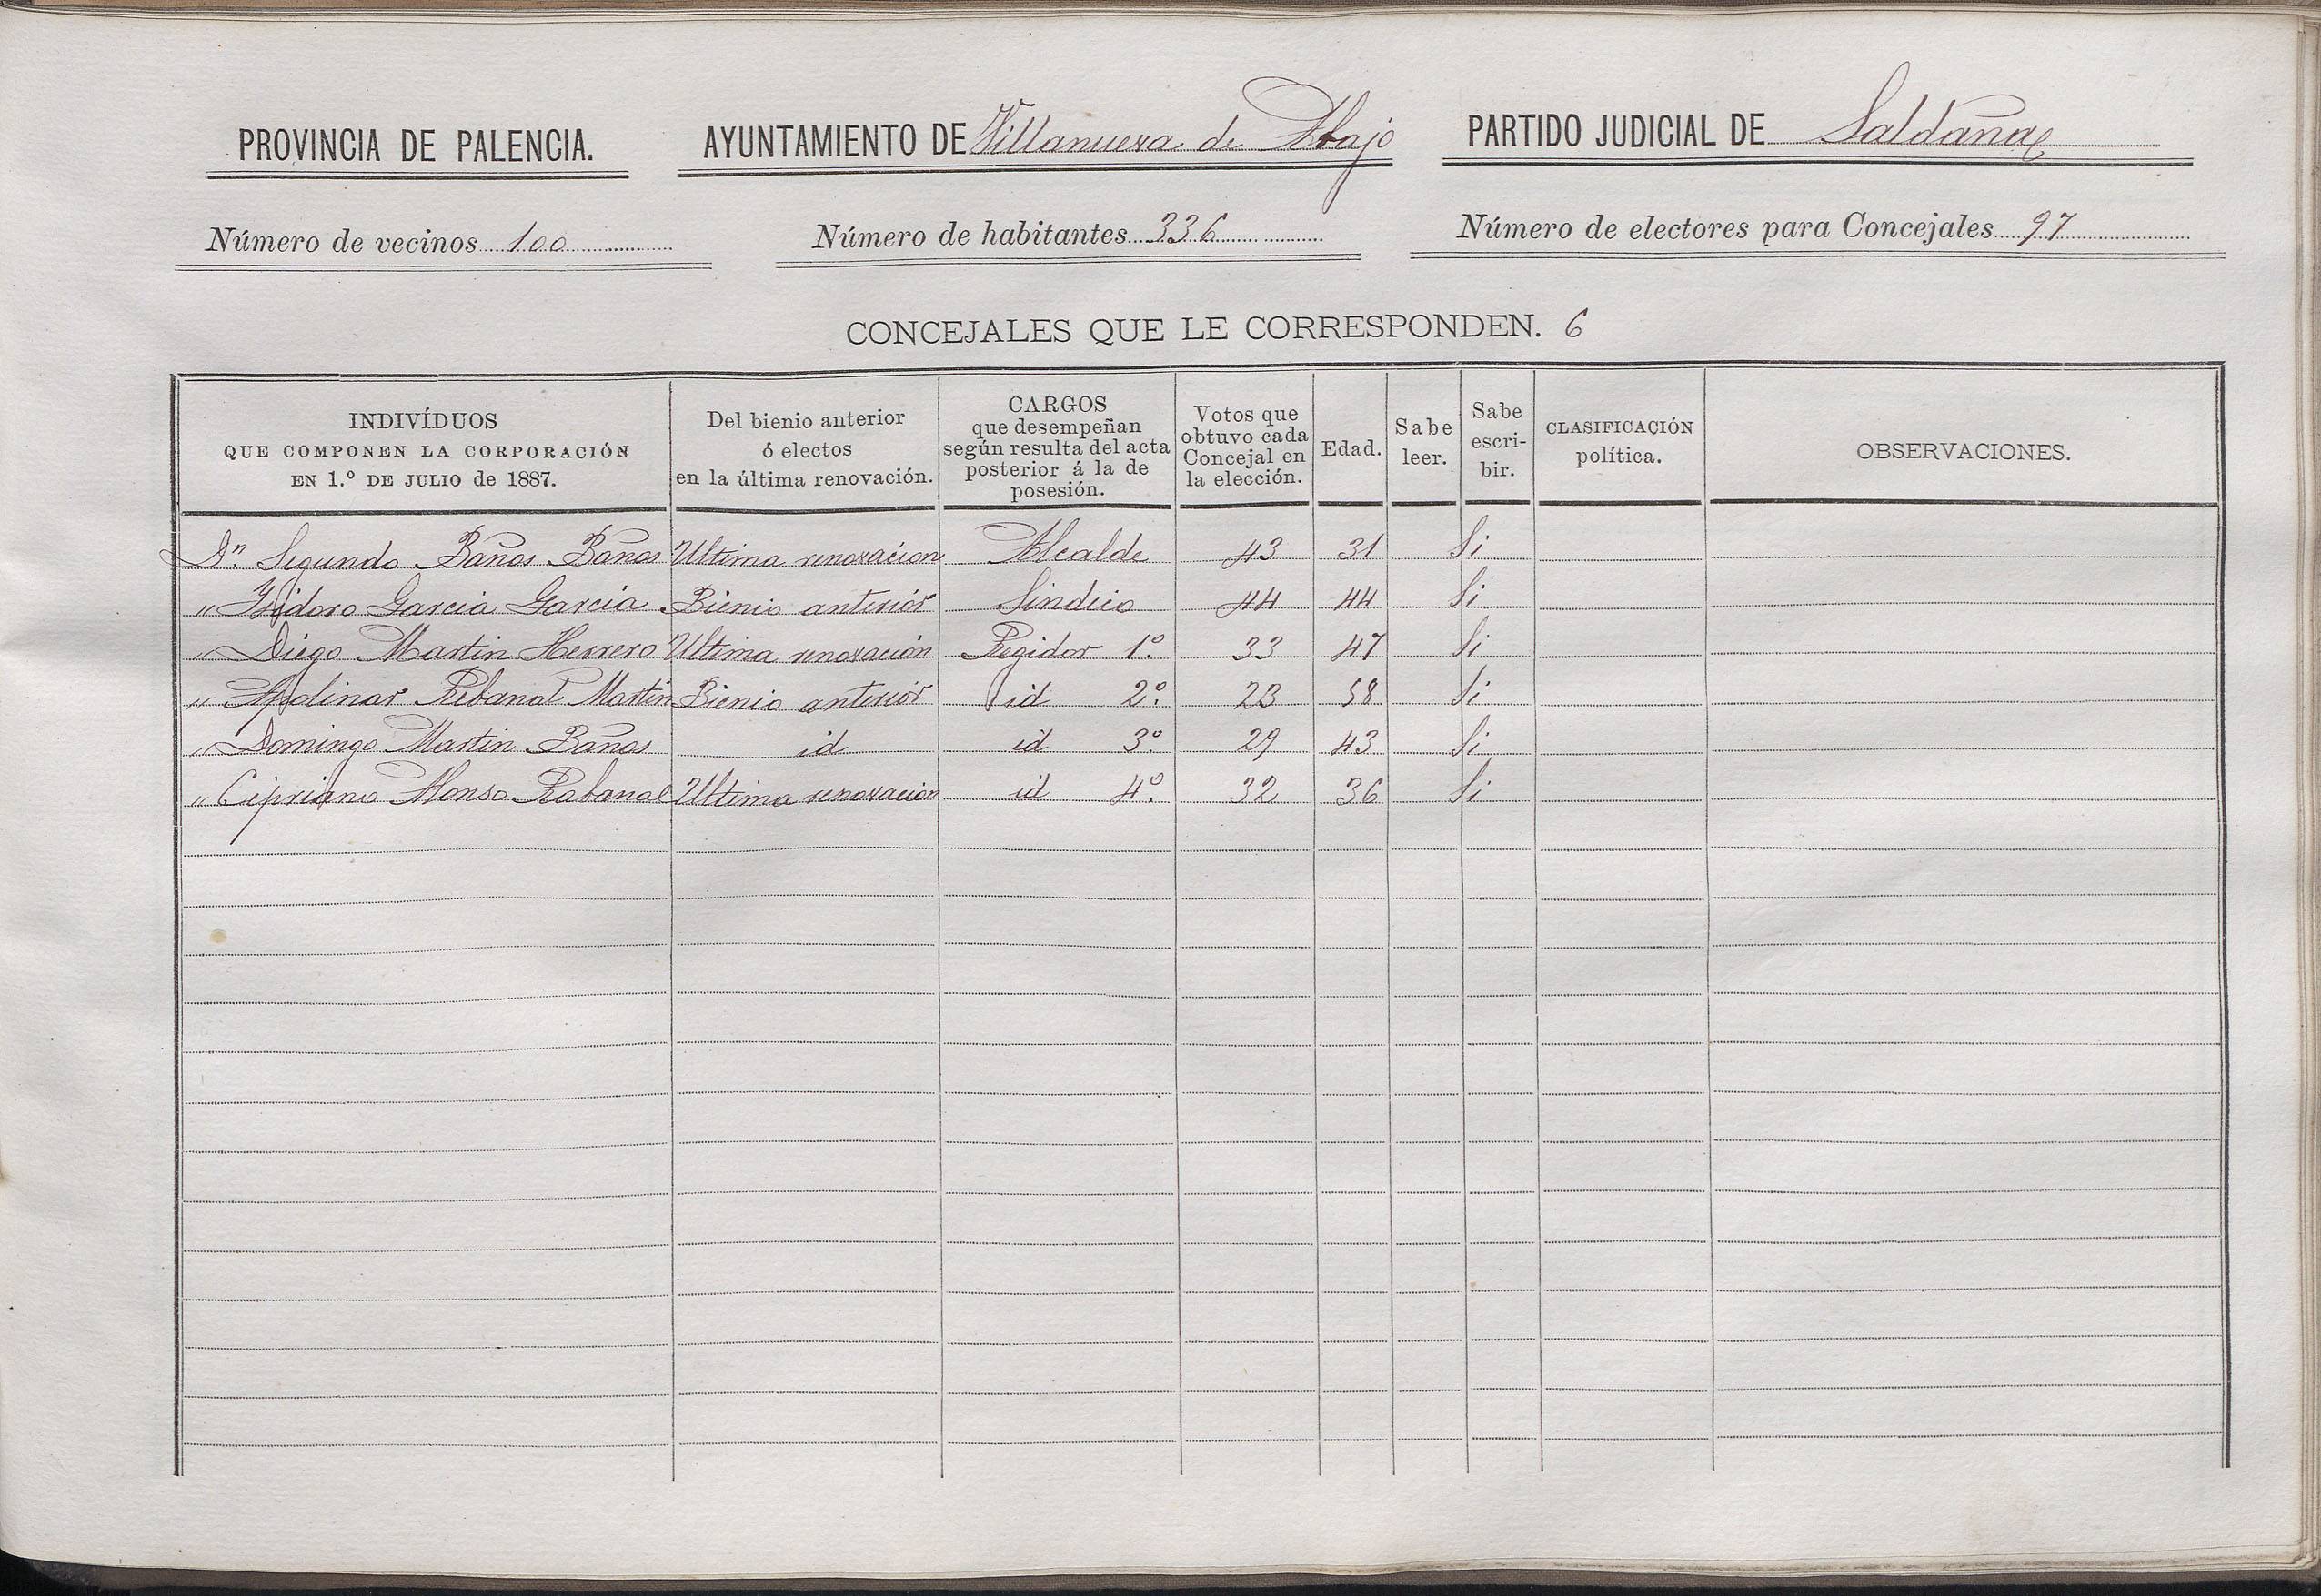 PROVINCIA DE PALENCIA. AYUNTAMIENTO DE Villanueva de Abajo PARTIDO JUDICIAL DE Saldaña
Número de vecinos 100 Número de habitantes 336 Número de electores para Concejales 97
CONCEJALES QUE LE CORRESPONDEN. 6
INDIVÍDUOS
QUE COMPONEN LA CORPORACIÓN
EN 1.º DE JULIO de 1887.
Del bienio anterior
ó electos
en la última renovación.
CARGOS
que desempeñan
según resulta del acta
posterior á la de
posesión.
Votos que
obtuvo cada
Concejal en
la elección.
Edad.
Sabe
leer.
Sabe
escri-
bir.
CLASIFICACIÓN
política.
OBSERVACIONES.
Dn. Segundo Baños Baños Ultima renovacion Alcalde 43 31 Si
" Ysidoro Garcia Garcia Bienio anteriór Sindico 44 44 Si
" Diego Martin Herrero Ultima renovación Regidor 1.º 33 47 Si
" Apolinar Rebanal Martin Bienio anteriór id 2.º 23 58 Si
" Domingo Martin Baños id id 3.º 29 43 Si
" Cipriano Alonso Rabanal Ultima renovación id 4.º 32 36 Si